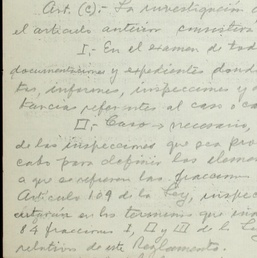 Art. (C).- La investigación
el artículo anterior consistirá
I.- En el examen de tod
documentaciones y expedientes dond
tos, informes, inspecciones y
tancias referentes al caso o ca
II.- Caso necesario,
de las inspecciones que
cato para definir los elemen
a que se refieren las fracciones
Artículo 109 de la Ley, inspec
en los términos que
84 fracciones I, II y III de la Le
relativos de este Reglamento.